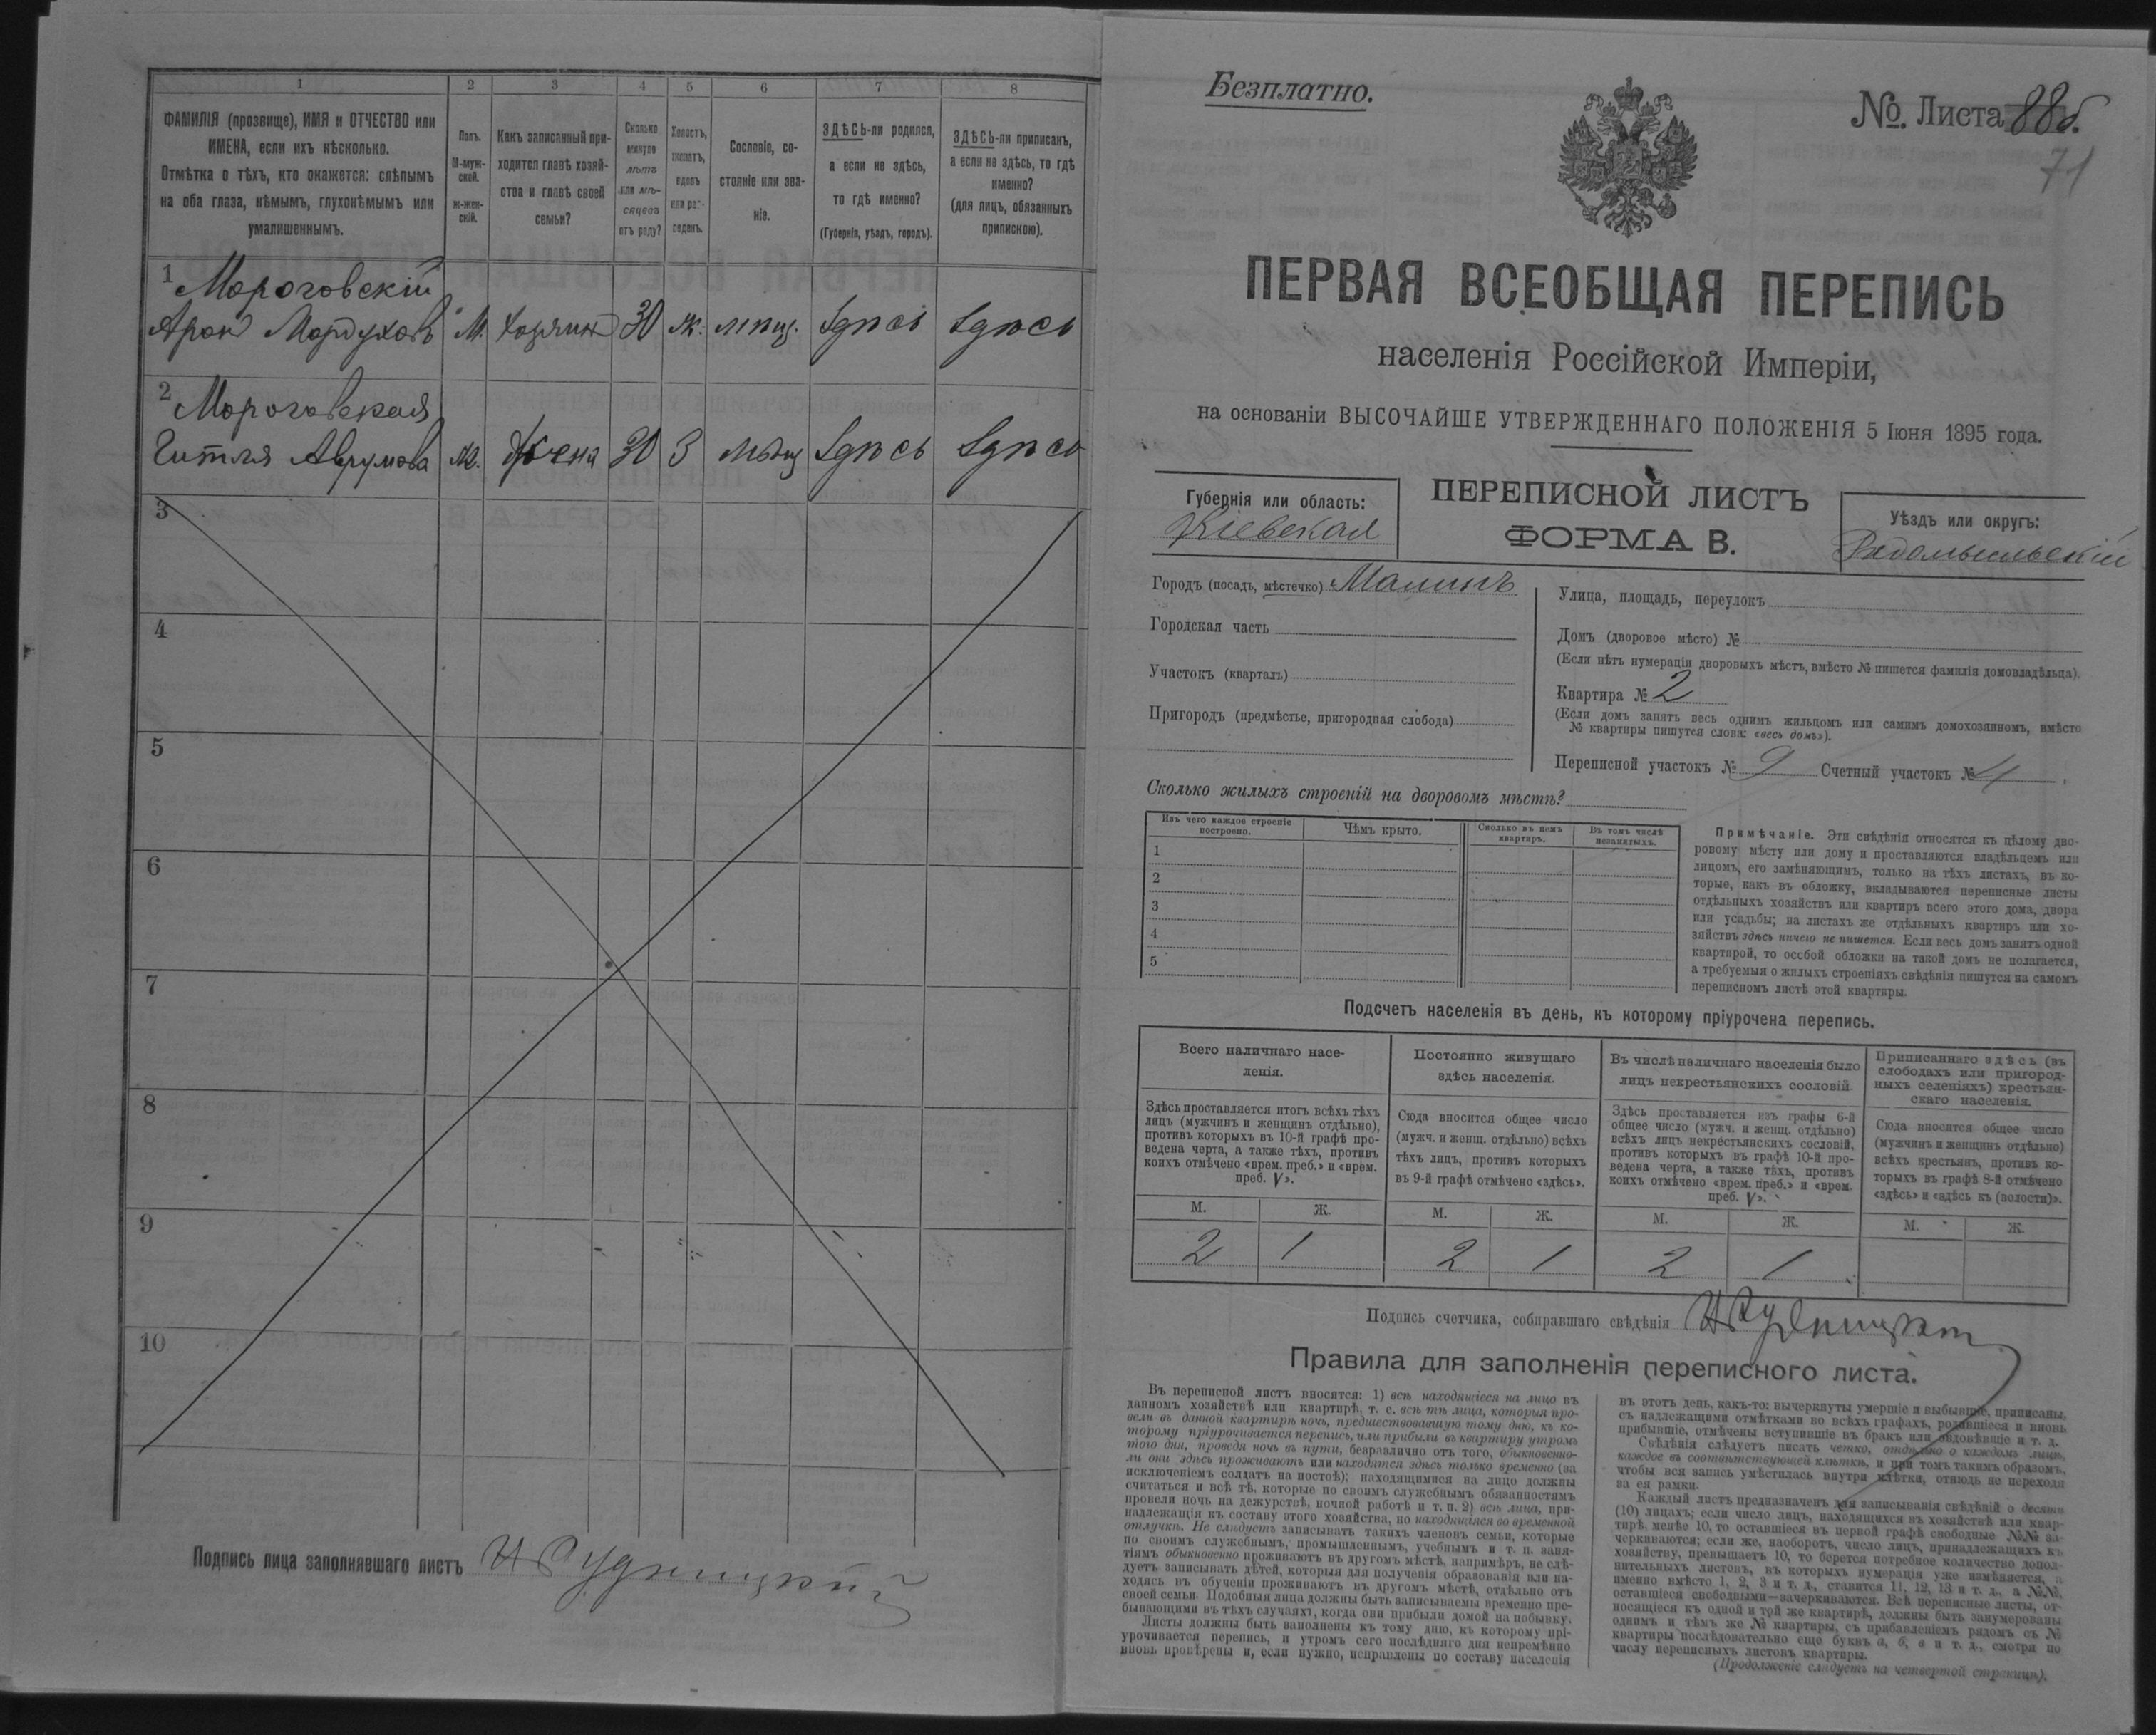 1
2
3
4
5
6
7
8
ФАМИЛІЯ (прозвище), ИМЯ и ОТЧЕСТВО или
ИМЕНА, если ихъ нѣсколько.
Отмѣтка о тѣхъ, кто окажется: слѣпымъ
на оба глаза, нѣмымъ, глухонѣмымъ или
умалишеннымъ.
Полъ.
М-муж-
ской.
Ж-жен-
скій.
Какъ записанный при-
ходится главѣ хозяй-
ства и главѣ своей
семьи?
Сколько
минуло
лѣтъ
или мѣ-
сяцевъ
отъ роду?
Холостъ,
женатъ,
вдовъ
или раз-
веденъ.
Сословіе, со-
стояніе или зва-
ніе.
ЗДѢСЬ-ли родился,
а если не здѣсь,
то гдѣ именно?
(Губернія, уѣздъ, городъ).
ЗДѢСЬ-ли приписанъ,
а если не здѣсь, то гдѣ
именно?
(для лицъ, обязанныхъ
припискою).
1 Мороговскій
Арон Мордухов М. Хозяин 30 ж. мѣщ. Здѣсь Здѣсь
2 Мороговская
Гитля Аврумова ж. Жена 30 З мѣщ Здѣсь Здѣсь
3
4
5
6
7
8
9
10
Подпись лица заполнявшаго листъ И Рудницкій
Безплатно.
№. Листа 88б.
71
ПЕРВАЯ ВСЕОБЩАЯ ПЕРЕПИСЬ
населенія Россійской Имперіи,
на основаніи ВЫСОЧАЙШЕ УТВЕРЖДЕННАГО ПОЛОЖЕНІЯ 5 Іюня 1895 года.
Губернія или область:
Кіевская
ПЕРЕПИСНОЙ ЛИСТЪ
ФОРМА В.
Уѣздъ или округъ:
Радомысльскій
Городъ (посадъ, мѣстечко) Малинъ
Городская часть
Участокъ (кварталъ)
Пригородъ (предмѣстье, пригородная слобода)
Улица, площадь, переулокъ
Домъ (дворовое мѣсто) №
(Если нѣтъ нумераціи дворовыхъ мѣстъ, вмѣсто № пишется фамилія домовладѣльца).
Квартира № 2
(Если домъ занятъ весь однимъ жильцомъ или самимъ домохозяиномъ, вмѣсто
№ квартиры пишутся слова: «весь домъ»).
Переписной участокъ № 9 Счетный участокъ № 4
Сколько жилыхъ строеній на дворовомъ мѣстѣ?
Изъ чего каждое строеніе
построено.
Чѣмъ крыто.
Сколько въ немъ
квартиръ.
Въ томъ числѣ
незанятыхъ.
1
2
3
4
5
Примѣчаніе. Эти свѣдѣнія относятся къ цѣлому дво-
ровому мѣсту или дому и проставляются владѣльцемъ или
лицомъ, его замѣняющимъ, только на тѣхъ листахъ, въ ко-
торые, какъ въ обложку, вкладываются переписные листы
отдѣльныхъ хозяйствъ или квартиръ всего этого дома, двора
или усадьбы; на листахъ же отдѣльныхъ квартиръ или хо-
зяйствъ здѣсь ничего не пишется. Если весь домъ занятъ одной
квартирой, то особой обложки на такой домъ не полагается,
а требуемыя о жилыхъ строеніяхъ свѣдѣнія пишутся на самомъ
переписномъ листѣ этой квартиры.
Подсчетъ населенія въ день, къ которому пріурочена перепись.
Всего наличнаго насе-
ленія.
Постоянно живущаго
здѣсь населенія.
Въ числѣ наличнаго населенія было
лицъ некрестьянскихъ сословій.
Приписаннаго здѣсь (въ
слободахъ или пригород-
ныхъ селеніяхъ) крестьян-
скаго населенія.
Здѣсь проставляется итогъ всѣхъ тѣхъ
лицъ (мужчинъ и женщинъ отдѣльно),
противъ которыхъ въ 10-й графѣ про-
ведена черта, а также тѣхъ, противъ
коихъ отмѣчено «врем. преб.» и «врем.
преб. V».
Сюда вносится общее число
(мужч. и женщ. отдѣльно) всѣхъ
тѣхъ лицъ, противъ которыхъ
въ 9-й графѣ отмѣчено «здѣсь».
Здѣсь проставляется изъ графы 6-й
общее число (мужч. и женщ. отдѣльно)
всѣхъ лицъ некрестьянскихъ сословій,
противъ которыхъ въ графѣ 10-й про-
ведена черта, а также тѣхъ, противъ
коихъ отмѣчено «врем. преб.» и «врем.
преб. V».
Сюда вносится общее число
(мужчинъ и женщинъ отдѣльно)
всѣхъ крестьянъ, противъ ко-
торыхъ въ графѣ 8-й отмѣчено
«здѣсь» и «здѣсь къ (волости)».
М. Ж. М. Ж. М. Ж. М. Ж.
2 1 2 1 2 1
Подпись счетчика, собиравшаго свѣдѣнія И Рудницкій
Правила для заполненія переписного листа.
Въ переписной листъ вносятся: 1) всѣ находящіеся на лицо въ
данномъ хозяйствѣ или квартирѣ, т. е. всѣ тѣ лица, которыя про-
вели въ данной квартирѣ ночь, предшествовавшую тому дню, къ ко-
торому пріурочивается перепись, или прибыли въ квартиру утромъ
того дня, проведя ночь въ пути, безразлично отъ того, обыкновенно-
ли они здѣсь проживаютъ или находятся здѣсь только временно (за
исключеніемъ солдатъ на постоѣ); находящимися на лицо должны
считаться и всѣ тѣ, которые по своимъ служебнымъ обязанностямъ
провели ночь на дежурствѣ, ночной работѣ и т. п. 2) всѣ лица, при-
надлежащія къ составу этого хозяйства, но находящіяся во временной
отлучкѣ. Не слѣдуетъ записывать такихъ членовъ семьи, которые
по своимъ служебнымъ, промышленнымъ, учебнымъ и т. п. заня-
тіямъ обыкновенно проживаютъ въ другомъ мѣстѣ, напримѣръ, не слѣ-
дуетъ записывать дѣтей, которыя для полученія образованія или на-
ходясь въ обученіи проживаютъ въ другомъ мѣстѣ, отдѣльно отъ
своей семьи. Подобныя лица должны быть записываемы временно пре-
бывающими въ тѣхъ случаяхъ, когда они прибыли домой на побывку.
Листы должны быть заполнены къ тому дню, къ которому прі-
урочивается перепись, и утромъ сего послѣдняго дня непремѣнно
вновь провѣрены и, если нужно, исправлены по составу населенія
въ этотъ день, какъ-то: вычеркнуты умершіе и выбывшіе, приписаны,
съ надлежащими отмѣтками во всѣхъ графахъ, родившіеся и вновь
прибывшіе, отмѣчены вступившіе въ бракъ или овдовѣвшіе и т. д.
Свѣдѣнія слѣдуетъ писать четко, отдѣльно о каждомъ лицѣ,
каждое въ соотвѣтствующей клѣткѣ, и при томъ такимъ образомъ,
чтобы вся запись умѣстилась внутри клѣтки, отнюдь не переходя
за ея рамки.
Каждый листъ предназначенъ для записыванія свѣдѣній о десяти
(10) лицахъ; если число лицъ, находящихся въ хозяйствѣ или квар-
тирѣ, менѣе 10, то оставшіеся въ первой графѣ свободные №№ за-
черкиваются; если же, наоборотъ, число лицъ, принадлежащихъ къ
хозяйству, превышаетъ 10, то берется потребное количество допол-
нительныхъ листовъ, въ которыхъ нумерація уже измѣняется, а
именно вмѣсто 1, 2, 3 и т. д., ставится 11, 12, 13 и т. д., а №№,
оставшіеся свободными—зачеркиваются. Всѣ переписные листы, от-
носящіеся къ одной и той же квартирѣ, должны быть занумерованы
однимъ и тѣмъ же № квартиры, съ прибавленіемъ рядомъ съ №
квартиры послѣдовательно еще буквъ а, б, в и т. д., смотря по
числу переписныхъ листовъ квартиры.
(Продолженіе слѣдуетъ на четвертой страницѣ).